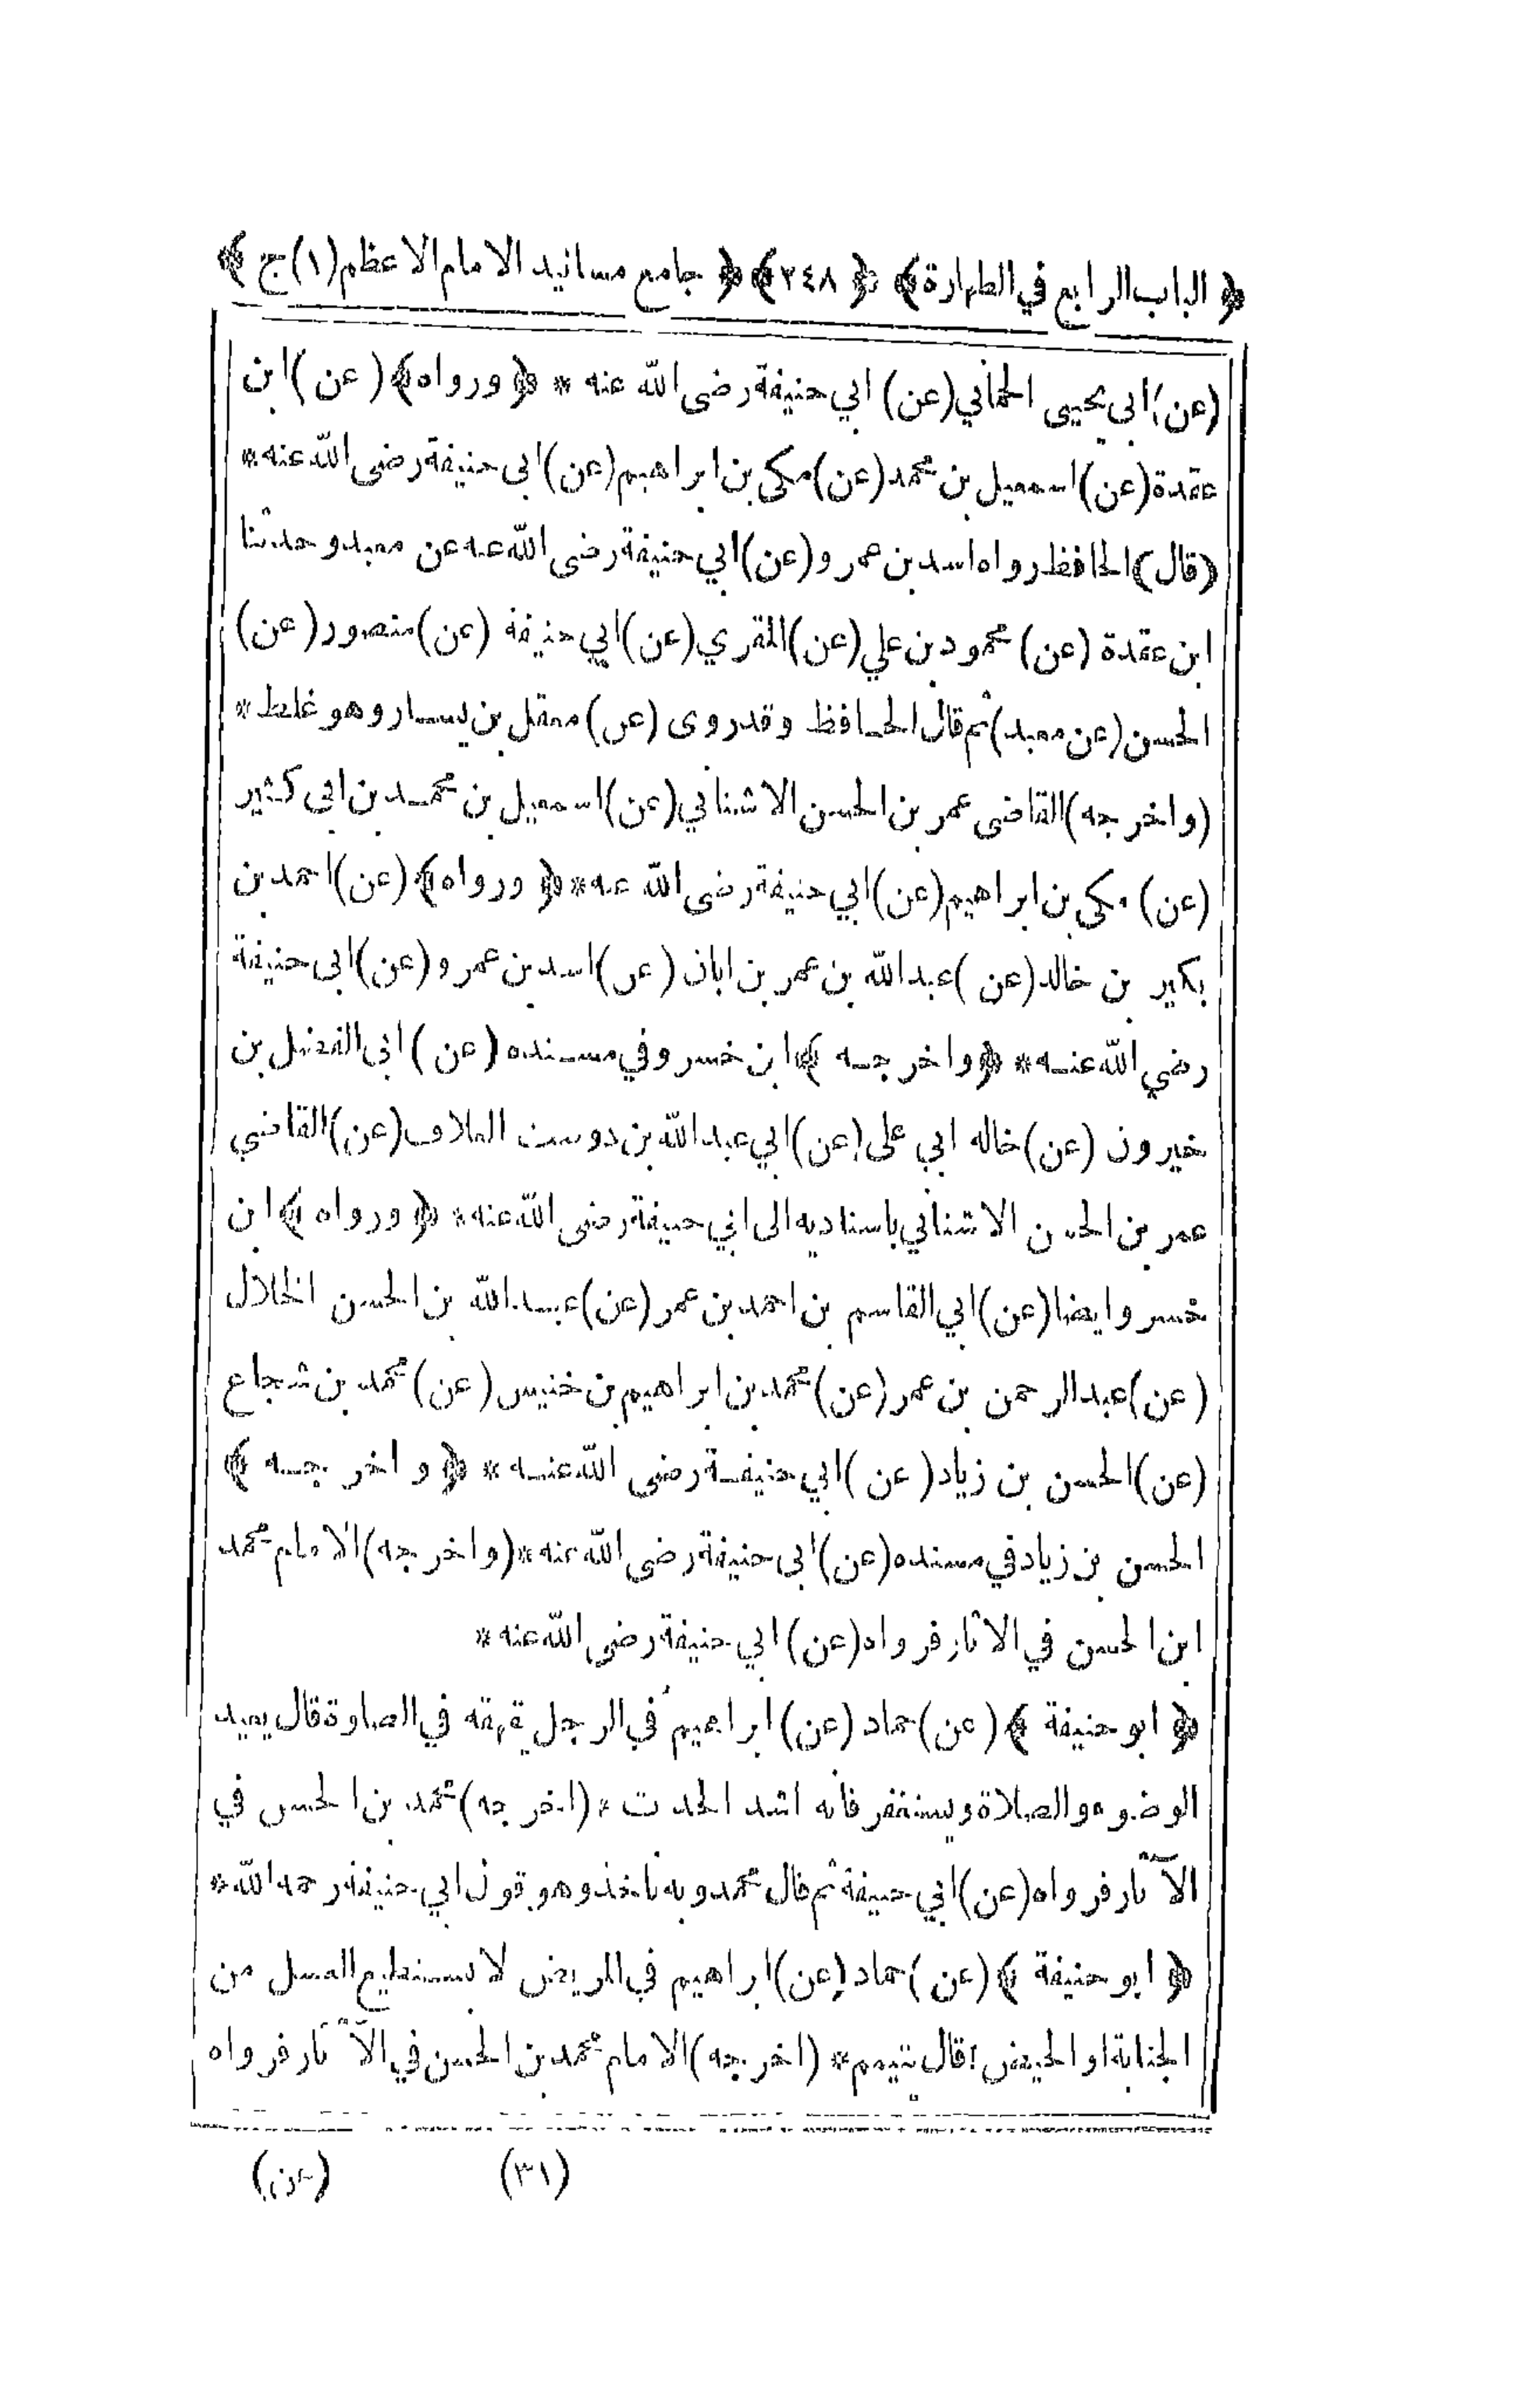 ﴿ الباب الرابع في الطهارة ﴾ ﴿ ٢٤٨ ﴾ ﴿ جامع مسانيد الامام الاعظم (١) ج ﴾
(عن) ابى يحيى الحمانى (عن) ابي حنيفة رضى الله عنه * ﴿ ورواه ﴾ (عن) ابن
عقدة (عن) اسمعيل بن محمد (عن) مكى بن ابراهيم (عن) ابى حنيفة رضى الله عنه *
(قال) الحافظ رواه اسد بن عمرو (عن) ابي حنيفة رضى الله عنه عن معبد وحدثنا
ابن عقدة (عن) محمود بن علي (عن) المقري (عن) ابي حنيفة (عن) منصور (عن)
الحسن (عن معبد) ثم قال الحافظ وقد روى (عن) معقل بن يسار وهو غلط *
(واخرجه) القاضى عمر بن الحسن الاشنانى (عن) اسمعيل بن محمد بن ابى كثير
(عن) مكى بن ابراهيم (عن) ابي حنيفة رضى الله عنه * ﴿ ورواه ﴾ (عن) احمد بن
بكير بن خالد (عن) عبد الله بن عمر بن ابان (عن) اسد بن عمرو (عن) ابى حنيفة
رضي الله عنه * ﴿ واخرجه ﴾ ابن خسرو في مسنده (عن) ابى الفضل بن
خيرون (عن) خاله ابي على (عن) ابي عبد الله بن دوست العلاف (عن) القاضي
عمر بن الحسن الاشنانى باسناديه الى ابي حنيفة رضى الله عنه * ﴿ ورواه ﴾ ابن
خسرو ايضا (عن) ابي القاسم بن احمد بن عمر (عن) عبد الله بن الحسن الخلال
(عن) عبد الرحمن بن عمر (عن) محمد بن ابراهيم بن خنيس (عن) محمد بن شجاع
(عن) الحسن بن زياد (عن) ابي حنيفة رضى الله عنه * ﴿ واخرجه ﴾
الحسن بن زياد في مسنده (عن) ابى حنيفة رضى الله عنه * (واخرجه) الامام محمد
ابن الحسن في الاثار فرواه (عن) ابي حنيفة رضى الله عنه *
﴿ ابو حنيفة ﴾ (عن) حماد (عن) ابراهيم في الرجل يقهقه في الصلوة قال يعيد
الوضوء والصلاة ويستغفر فانه اشد الحدث * (اخرجه) محمد بن الحسن في
الآثار فرواه (عن) ابي حنيفة ثم قال محمد وبه ناخذ وهو قول ابي حنيفة رحمه الله *
﴿ ابو حنيفة ﴾ (عن) حماد (عن) ابراهيم في المريض لا يستطيع الغسل من
الجنابة او الحيض قال يتيمم * (اخرجه) الامام محمد بن الحسن في الآثار فرواه
(٣١) (عن)